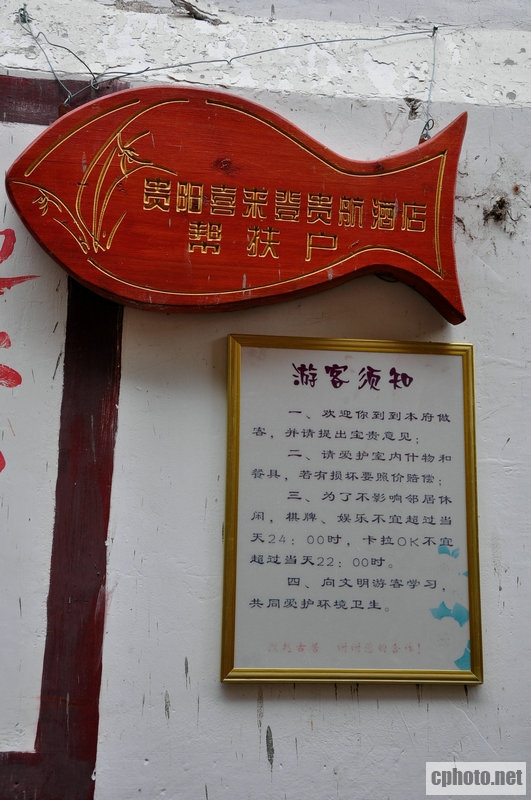 贵阳喜来登贵航酒店
帮扶户
游客须知
一、欢迎你到到本府做
客，并请提出宝贵意见；
二、请爱护室内什物和
餐具，若有损坏要照价赔偿；
三、为了不影响邻居休
闲，棋牌、娱乐不宜超过当
天24：00时，卡拉OK不宜
超过当天22：00时。
四、向文明游客学习，
共同爱护环境卫生。
谢谢您的合作！
cphoto.net